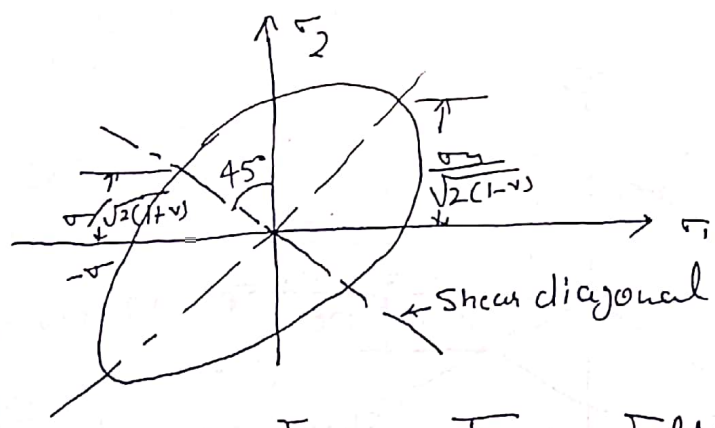 σ₂
45°
σy
√2(1-ν)
σ/√2(1+ν)
σ₁
-σ
← Shear diagonal